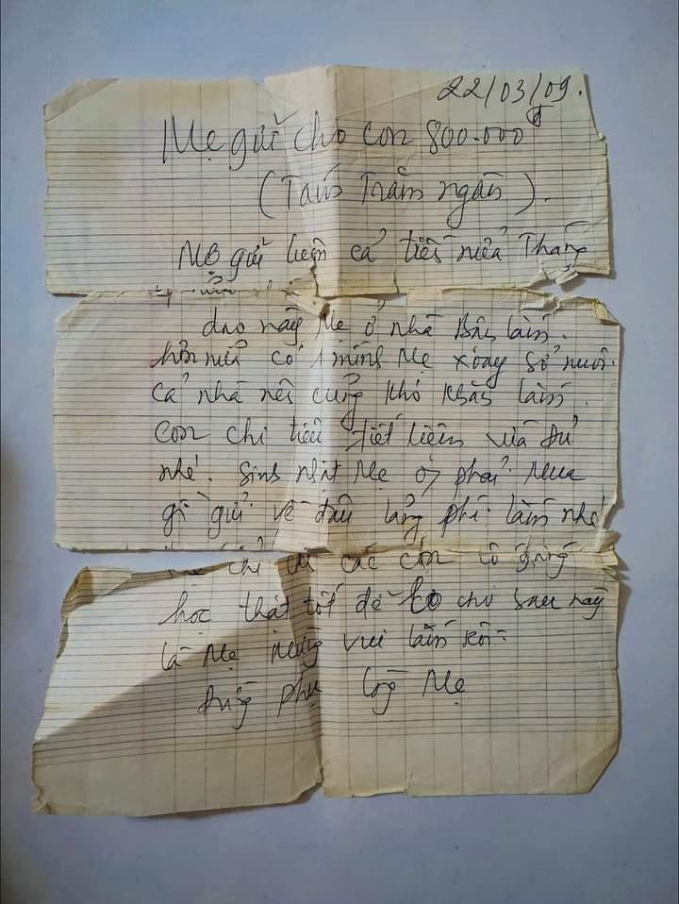 22/03/09.
Mẹ gửi cho con 800.000đ
(Tám Trăm ngàn).
Mẹ gửi luôn cả tiền nửa Tháng
dạo này Mẹ ở nhà Bận lắm.
hơn nữa có 1 mình Mẹ xoay sở nuôi
cả nhà nên cũng khó khăn lắm.
con chi tiêu tiết kiệm vừa đủ
nhé. Sinh nhật Mẹ ko phải Mua
gì gửi về đâu lãng phí lắm nhé
chỉ các con cố gắng
học thật tốt để cho sau này
là Mẹ mừng vui lắm rồi
đừng phụ lòng Mẹ